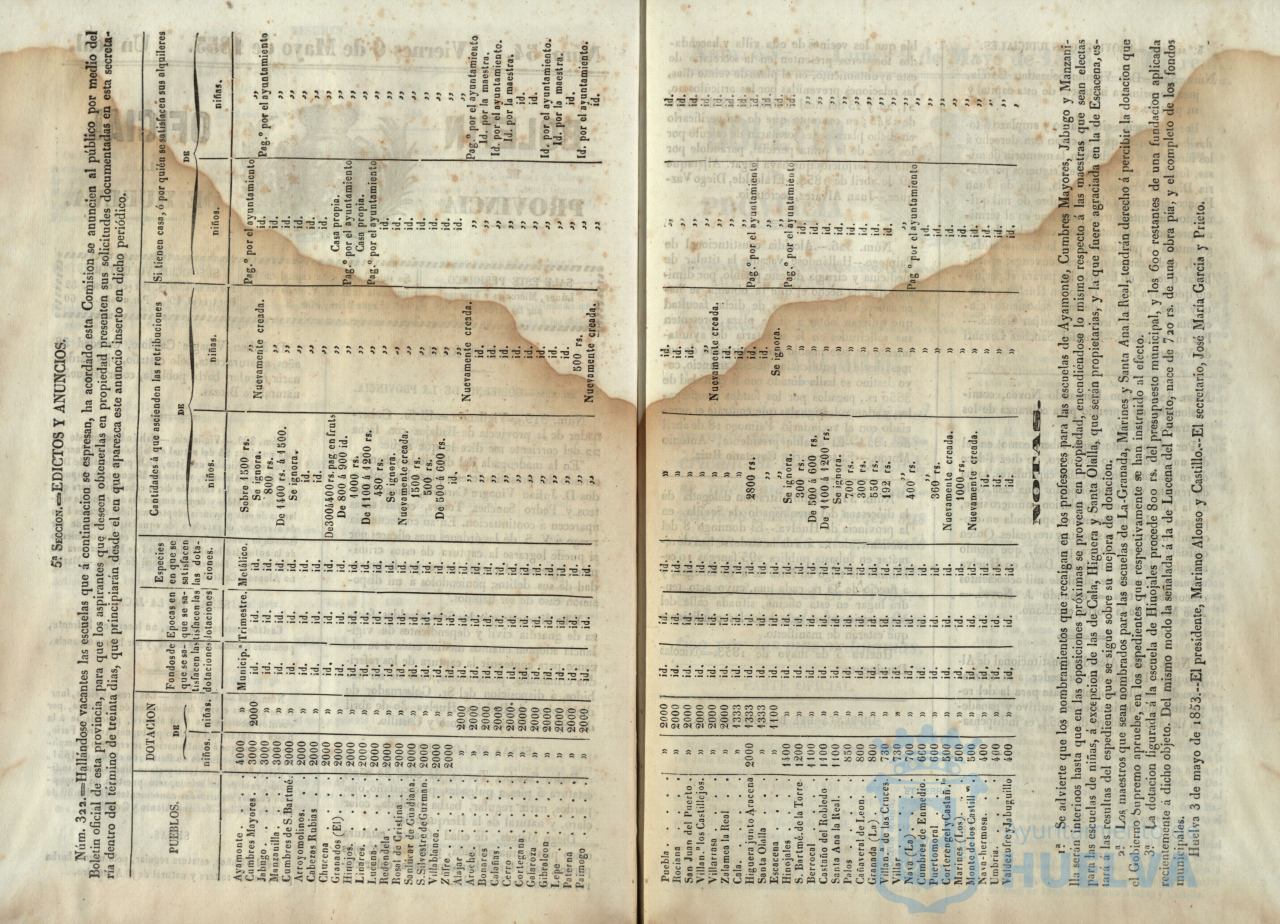 5.ª SECCION.=EDICTOS Y ANUNCIOS.
Núm. 322.=Hallándose vacantes las escuelas que á continuacion se espresan, ha acordado esta Comision se anuncien al público por medio del
Boletin oficial de esta provincia, para que los aspirantes que deseen obtenerlas en propiedad presenten sus solicitudes documentadas en esta secreta-
ria dentro del término de treinta dias, que principiarán desde el en que aparezca este anuncio inserto en dicho periódico.
PUEBLOS. DOTACION DE niños. niñas. Fondos de que se satisfacen las dotaciones Epocas en que se satisfacen las dotaciones Especies en que se satisfacen las dotaciones. Cantidades á que ascienden las retribuciones DE niños. niñas. Si tienen casa, ó por quién se satisfacen sus alquileres DE niños. niñas.
Ayamonte 4000 » Municip.s Trimestre. Metálico. Sobre 1500 rs. ,, Pag.º por el ayuntamiento ,,
Cumbres Mayores. 3000 2000 id. id. id. Se ignora. Nuevamente creada. id. Pag.º por el ayuntamiento
Jabugo 3000 » id. id. id. 800 rs. ,, id. ,,
Manzanilla. 3000 » id. id. id. De 1400 rs. á 1500. ,, id. ,,
Cumbres de S. Bartmé. 2000 » id. id. id. Se ignora. ,, id. ,,
Arroyomolinos. 2000 » id. id. id. id. ,, id. ,,
Cabezas Rubias 2000 » id. id. id. id. ,, id. ,,
Chucena 2000 » id. id. id. De 300 á 400 rs. pag en fruts ,, id. ,,
Granados (El) 2000 » id. id. id. De 800 á 900 id. ,, Casa propia. ,,
Hinojos. 2000 » id. id. id. 1000 rs. ,, Pag.º por el ayuntamiento ,,
Linares. 2000 » id. id. id. De 1100 á 1200 rs. ,, Casa propia. ,,
Lucena. 2000 » id. id. id. 480 rs. ,, Pag.º por el ayuntamiento ,,
Redondela 2000 » id. id. id. Se ignora. ,, id. ,,
Rosal de Cristina 2000 » id. id. id. Nuevamente creada. ,, id. ,,
Sanlúcar de Guadiana 2000 » id. id. id. 1500 rs. ,, id. ,,
S. Silvestre de Guzman. 2000 » id. id. id. 500 rs. ,, id. ,,
Villablanca. 2000 » id. id. id. De 500 á 600 rs. ,, id. ,,
Zufre. 2000 » id. id. id. id. ,, id. ,,
Alajar » 2000 id. id. id. ,, Nuevamente creada. ,, Pag.º por el ayuntamiento
Aroche. » 2000 id. id. id. ,, id. ,, Id. por la maestra.
Bonares » 2000 id. id. id. ,, id. ,, Id. por el ayuntamiento.
Calañas. » 2000 id. id. id. ,, id. ,, Id. por la maestra.
Cerro » 2000 id. id. id. ,, id. ,, id.
Cortegana » 2000 id. id. id. ,, id. ,, id.
Galaroza » 2000 id. id. id. ,, id. ,, Id. por el ayuntamiento.
Gibraleon » 2000 id. id. id. ,, id. ,, Id. por la maestra.
Lepe » 2000 id. id. id. ,, id. ,, id.
Paterna » 2000 id. id. id. ,, 500 rs. ,, id.
Paimogo » 2000 id. id. id. ,, Nuevamente creada. ,, Id. por el ayuntamiento.
Puebla. » 2000 id. id. id. » id. ,, id.
Rociana » 2000 id. id. id. » id. ,, id.
San Juan del Puerto » 2000 id. id. id. » id. ,, id.
Villan.ª los Castillejos. » 2000 id. id. id. » id. ,, id.
Villarrasa » 2000 id. id. id. » Nuevamente creada. ,, id.
Zalamea la Real » 2000 id. id. id. » id. ,, id.
Cala. » 1333 id. id. id. » id. ,, id.
Higuera junto Aracena 2000 1333 id. id. id. 2800 rs. id. Pag.º por el ayuntamiento id.
Santa Olalla » 1333 id. id. id. ,, id. ,, id.
Escacena » 1100 id. id. id. ,, Se ignora. ,, id.
Hinojales 1400 » id. id. id. Se ignora. » Pag.º por el ayuntamiento id.
S. Bartmé. de la Torre 1200 » id. id. id. 300 rs. » id. ,,
Berrocal 1100 » id. id. id. De 500 á 600 rs. » id. ,,
Castaño del Robledo 1100 » id. id. id. De 1100 á 1200 rs. » id. ,,
Santa Ana la Real. 1100 » id. id. id. 160 rs. » id. ,,
Palos 850 » id. id. id. 700 rs. » id. ,,
Cañaveral de Leon. 800 » id. id. id. 300 rs. » id. ,,
Granada (La) 800 » id. id. id. 550 rs. » id. ,,
Villan.ª de las Cruces. 730 » id. id. id. 192 rs. » id. ,,
Villar 730 » id. id. id. ,, » ,, ,,
Nava (La) 700 » id. id. id. 400 rs. » Pag.º por el ayuntamiento ,,
Cumbres de Enmedio. 600 » id. id. id. ,, » id. ,,
Puertomoral 600 » id. id. id. 360 rs. » id. ,,
Corterangel y Castañ.º 500 » id. id. id. Nuevamente creada. » id. ,,
Marines (Los) 500 » id. id. id. 1000 rs. » id. ,,
Monte de los Castill.s 500 » id. id. id. Nuevamente creada. » id. ,,
Nava-hermosa. 400 » id. id. id. id. » id. ,,
Umbria. 400 » id. id. id. id. » id. ,,
Valdezufre y Jabuguillo 400 » id. id. id. id. » id. ,
NOTAS.
1.ª Se advierte que los nombramientos que recaigan en los profesores para las escuelas de Ayamonte, Cumbres Mayores, Jabugo y Manzani-
lla serán interinos hasta que en las oposiciones próximas se provean en propiedad, entendiéndose lo mismo respecto á las maestras que sean electas
para las escuelas de niñas, á excepcion de las de Cala, Higuera y Santa Olalla, que serán propietarias, y la que fuere agraciada en la de Escacena, es-
tará á las resultas del espediente que se sigue sobre su mejora de dotacion.
2.ª Los maestros que sean nombrados para las escuelas de La-Granada, Marines y Santa Ana la Real, tendrán derecho á percibir la dotacion que
el Gobierno Supremo apruebe, en los espedientes que respectivamente se han instruido al efecto.
3.ª La dotacion figurada á la escuela de Hinojales procede 800 rs. del presupuesto municipal, y los 600 restantes de una fundacion aplicada
recientemente á dicho objeto. Del mismo modo la señalada á la de Lucena del Puerto, nace de 720 rs. de una obra pia, y el completo de los fondos
municipales.
Huelva 3 de mayo de 1853.--El presidente, Mariano Alonso y Castillo.--El secretario, José María Garcia y Prieto.
Ayuntamiento
HUELVA